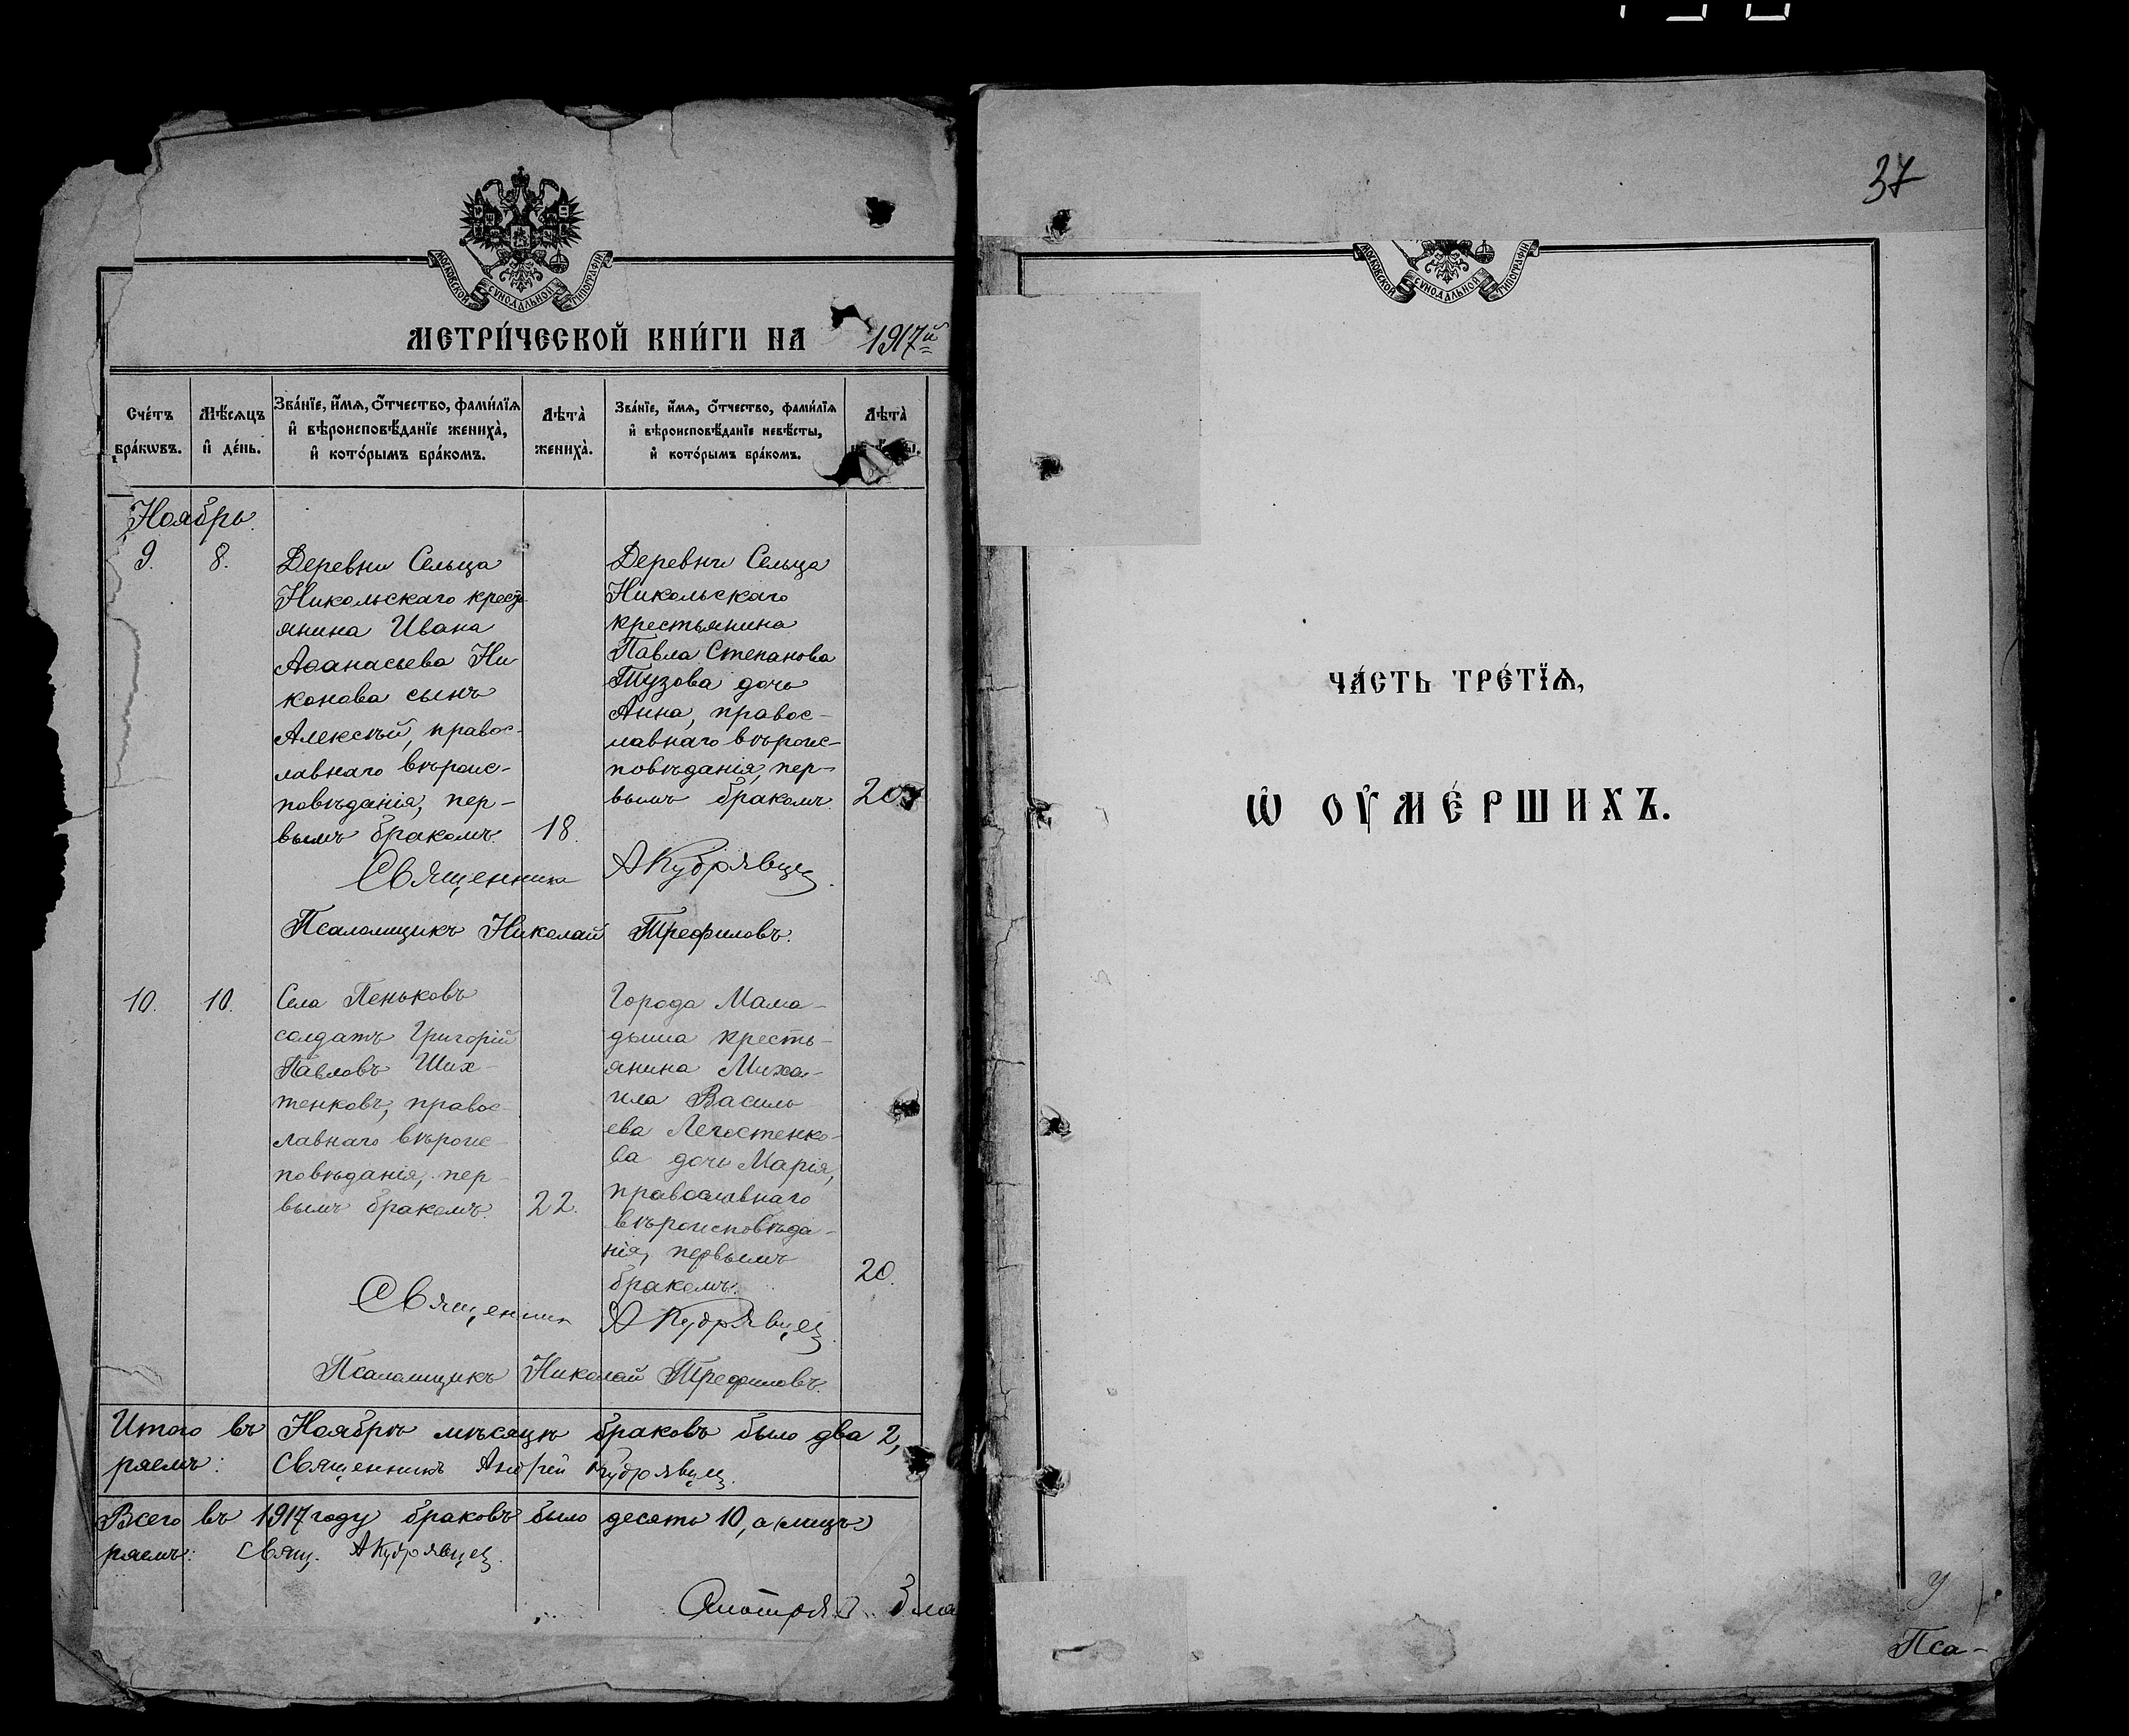 МОСКОВСКОЙ СѴНОДАЛЬНОЙ ТИПОГРАФІИ
МЕТРИ́ЧЕСКОЙ КНИ́ГИ НА 1917й
Сче́тъ бра́кωвъ.
Мѣ́сѧцъ и҆ де́нь.
Зва́нїе, и҆́мѧ, ѻ҆́тчество, фами́лїѧ
и҆ вѣроисповѣ́данїе жениха̀,
и҆ кото́рымъ бра́комъ.
Лѣта̀
жениха̀.
Зва́нїе, и҆́мѧ, ѻ҆́тчество, фами́лїѧ
и҆ вѣроисповѣ́данїе невѣ́сты,
и҆ кото́рымъ бра́комъ.
Лѣта̀
Ноябрь.
9. 8.
Деревни Сельца
Никольскаго кресть
янина Ивана
Аѳанасьева Ни
конова сынъ
Алексѣй, правос-
лавнаго вѣроис-
повѣданія, пер-
вымъ бракомъ. 18.
Деревни Сельца
Никольскаго
крестьянина
Павла Степанова
Тузова дочь
Анна, правос-
лавнаго вѣроис-
повѣданія, пер-
вымъ бракомъ. 20
Священникъ АКудрявцев.
Псаломщикъ Николай Трефиловъ.
10. 10.
Села Пеньковъ
солдатъ Григорій
Павловъ Ших-
тенковъ, правос-
лавнаго вѣроис-
повѣданія, пер-
вымъ бракомъ. 22.
Города Мама-
дыша кресть-
янина Миха-
ила Василь
ева Легостенко-
ва дочь Марія,
православнаго
вѣроисповѣда-
нія, первымъ
бракомъ. 20.
Священник АКудрявцев
Псаломщикъ Николай Трефиловъ.
Итого въ Ноябрѣ мѣсяцѣ браковъ было два 2,
Священникъ Андрей Кудрявцев.
Всего въ 1917 году браковъ было десять 10, а лицъ
Свящ. АКудрявцев.
37
МОСКОВСКОЙ СѴНОДАЛЬНОЙ ТИПОГРАФІИ
ЧА́СТЬ ТРЕ́ТЇѦ,
Ѡ҆ ОУ҆МЕ́РШИХЪ.
У
Пса-